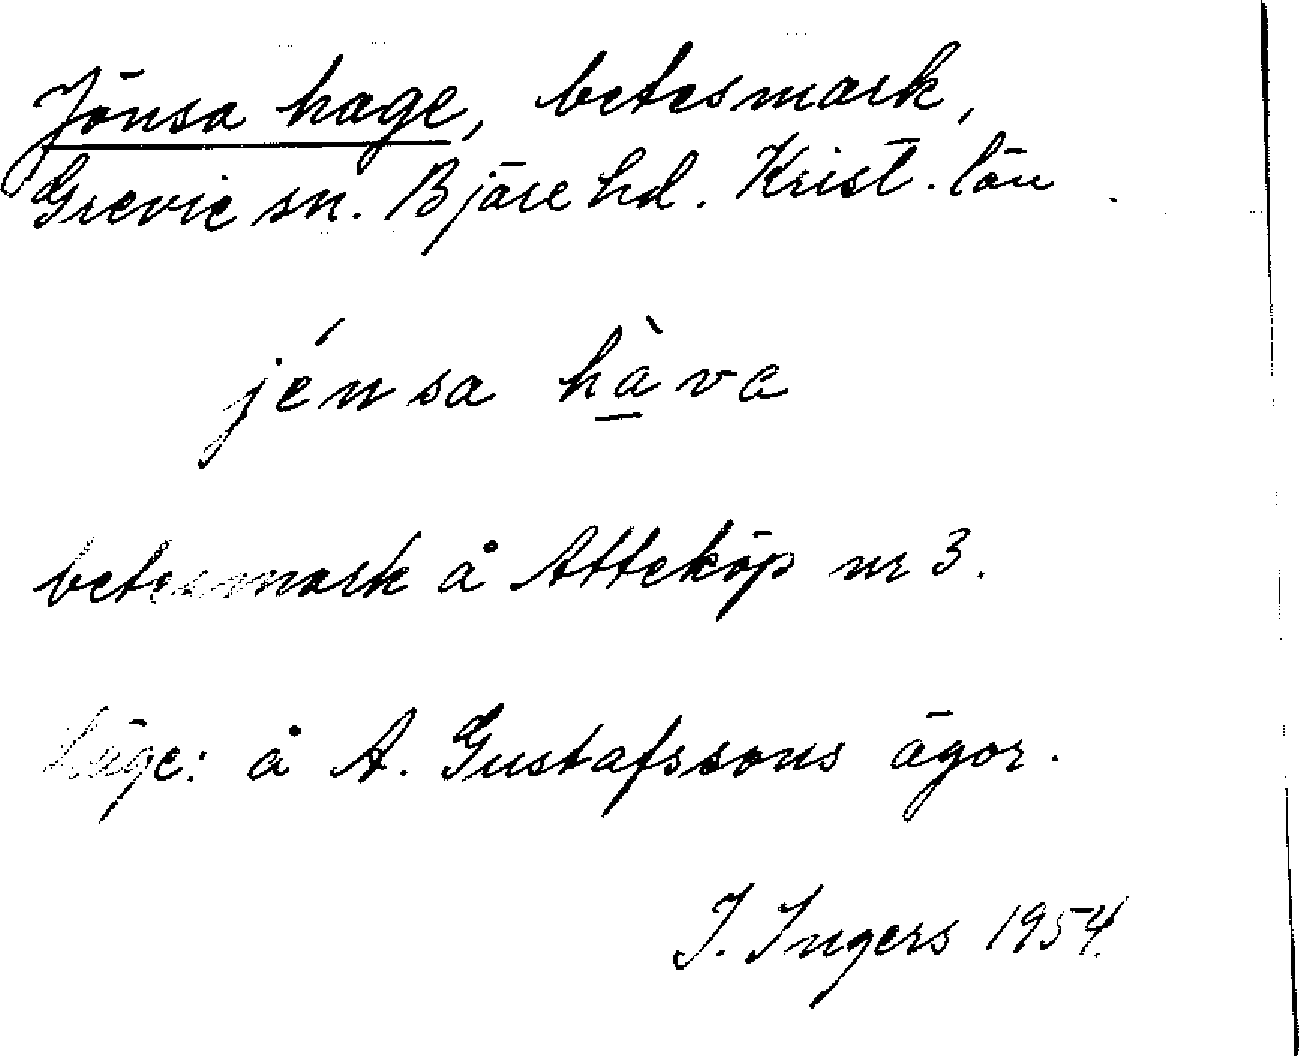 Jönsa hage, betesmark,
Grevie sn. Bjäre hd. Krist. län.
jénsa hàva
betesmark å Atteköp nr 3.
Läge: å A. Gustafssons ägor.
I. Ingers 1954.